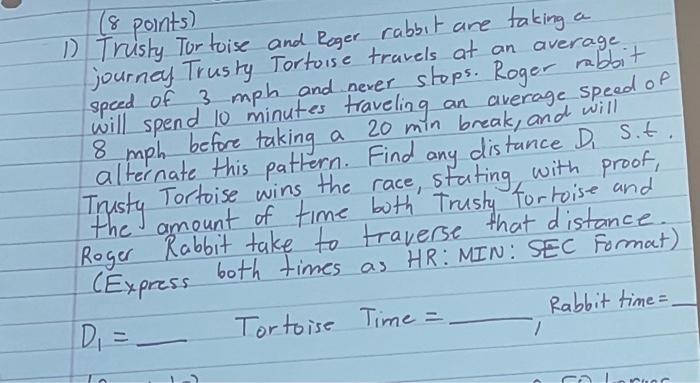 (8 points)
1) Trusty Tortoise and Roger rabbit are taking a
journey Trusty Tortoise travels at an average
speed of 3 mph and never stops. Roger rabbit
will spend 10 minutes traveling an average speed of
8 mph before taking a 20 min break, and will
alternate this pattern. Find any distance D1 s.t.
Trusty Tortoise wins the race, stating with proof,
the amount of time both Trusty Tortoise and
Roger Rabbit take to traverse that distance.
(Express both times as HR: MIN: SEC Format)
D1 = ___ Tortoise Time = ______, Rabbit time = __